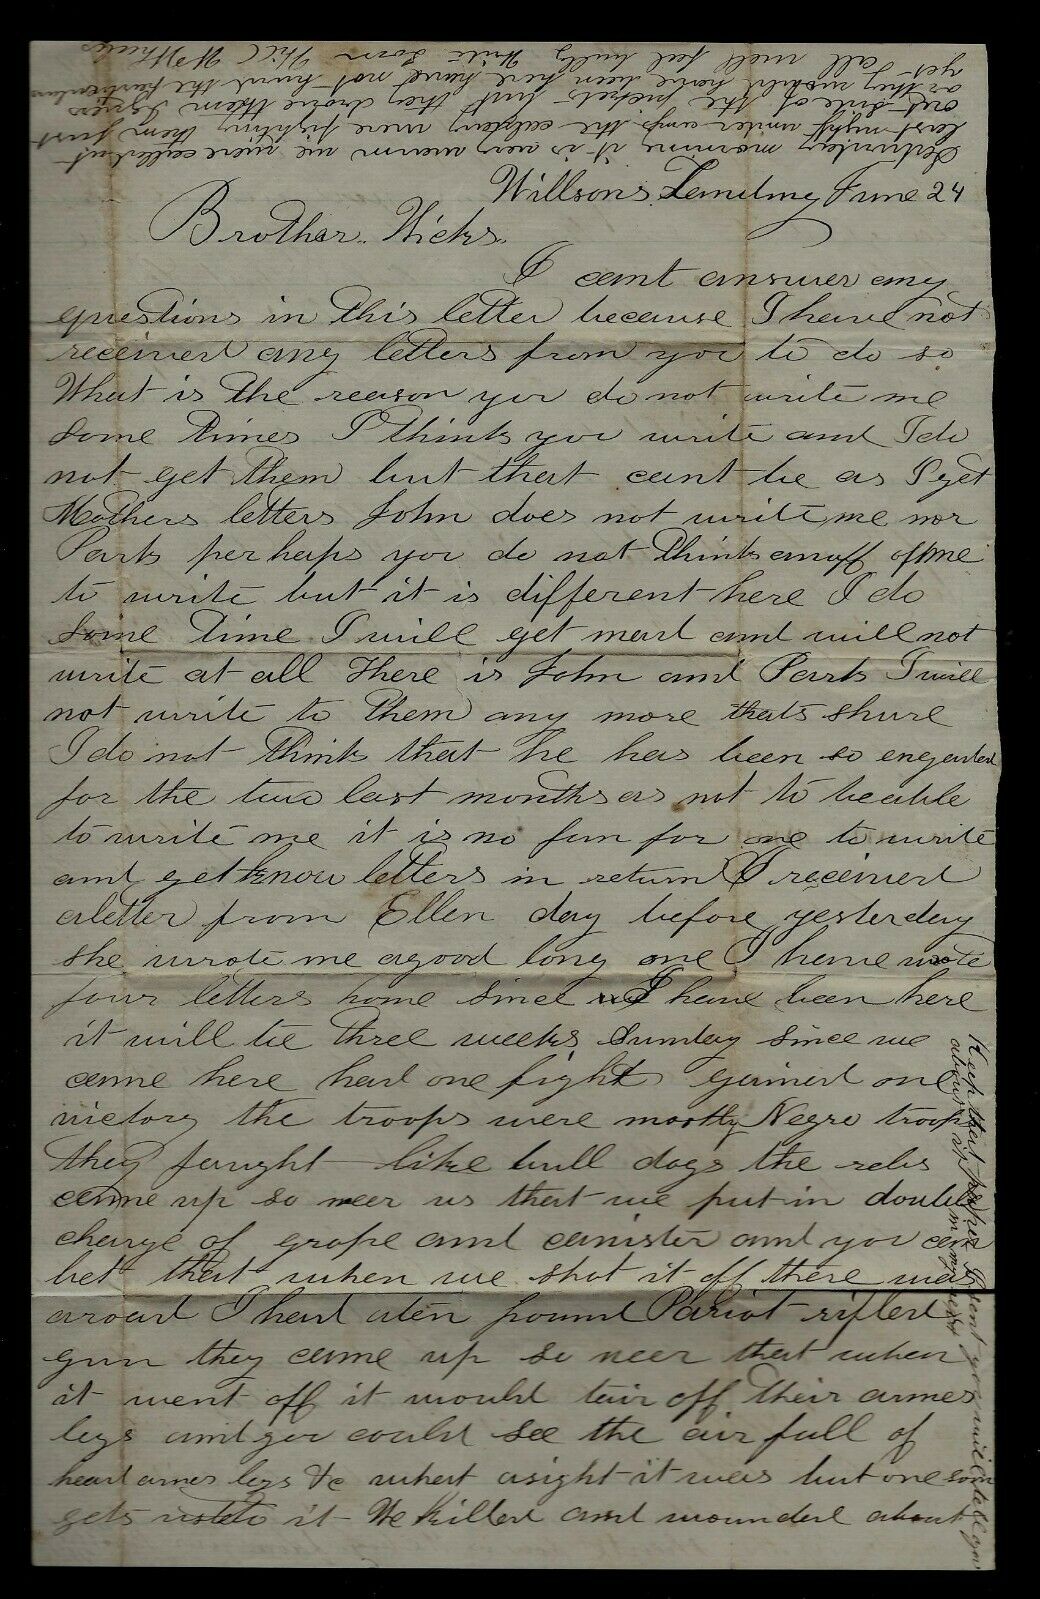 Willsons Landing June 24
Brother Hicks.
I cant answer any
questions in this letter because I have not
received any letters from you to do so
What is the reason you do not write me
some times I think you write and I do
not get them but that cant be as I get
Mothers letters John does not write me nor
Park perhaps you do not think anuff of me
to write but it is different here I do
some time I will get mad and will not
write at all There is John and Park I will
not write to them any more thats shure
I do not think that he has been so
for the two last months as not to be able
to write me it is no fun for one to write
and get know letters in return I received
a letter from Ellen day before yesterday
she wrote me a good long one I have wrote
four letters home since I have been here
it will be three weeks Sunday since we
came here had one fight gained one
victory the troops were mostly Negro troops
they faught like bull dogs the rebs
came up so near us that we put in double
charge of grape and canister and you can
bet that when we shot it off there was
a road I had a ten pound Pariot rifled
gun they came up so near that when
it went off it would tair off their armes
legs and you could see the air full of
head armes legs &c what a sight it was but one soon
gets used to it We killed and wounded about
Keep that paper I sent you will tell you
about
Saturday morning it is very warm we were called out
last night under arms the cavalry were fighting them just
out side of the pickets but they drove them I guess
as they would have been here have not heard the particulars
yet I all well feel bully Write soon Phil W Wheeler